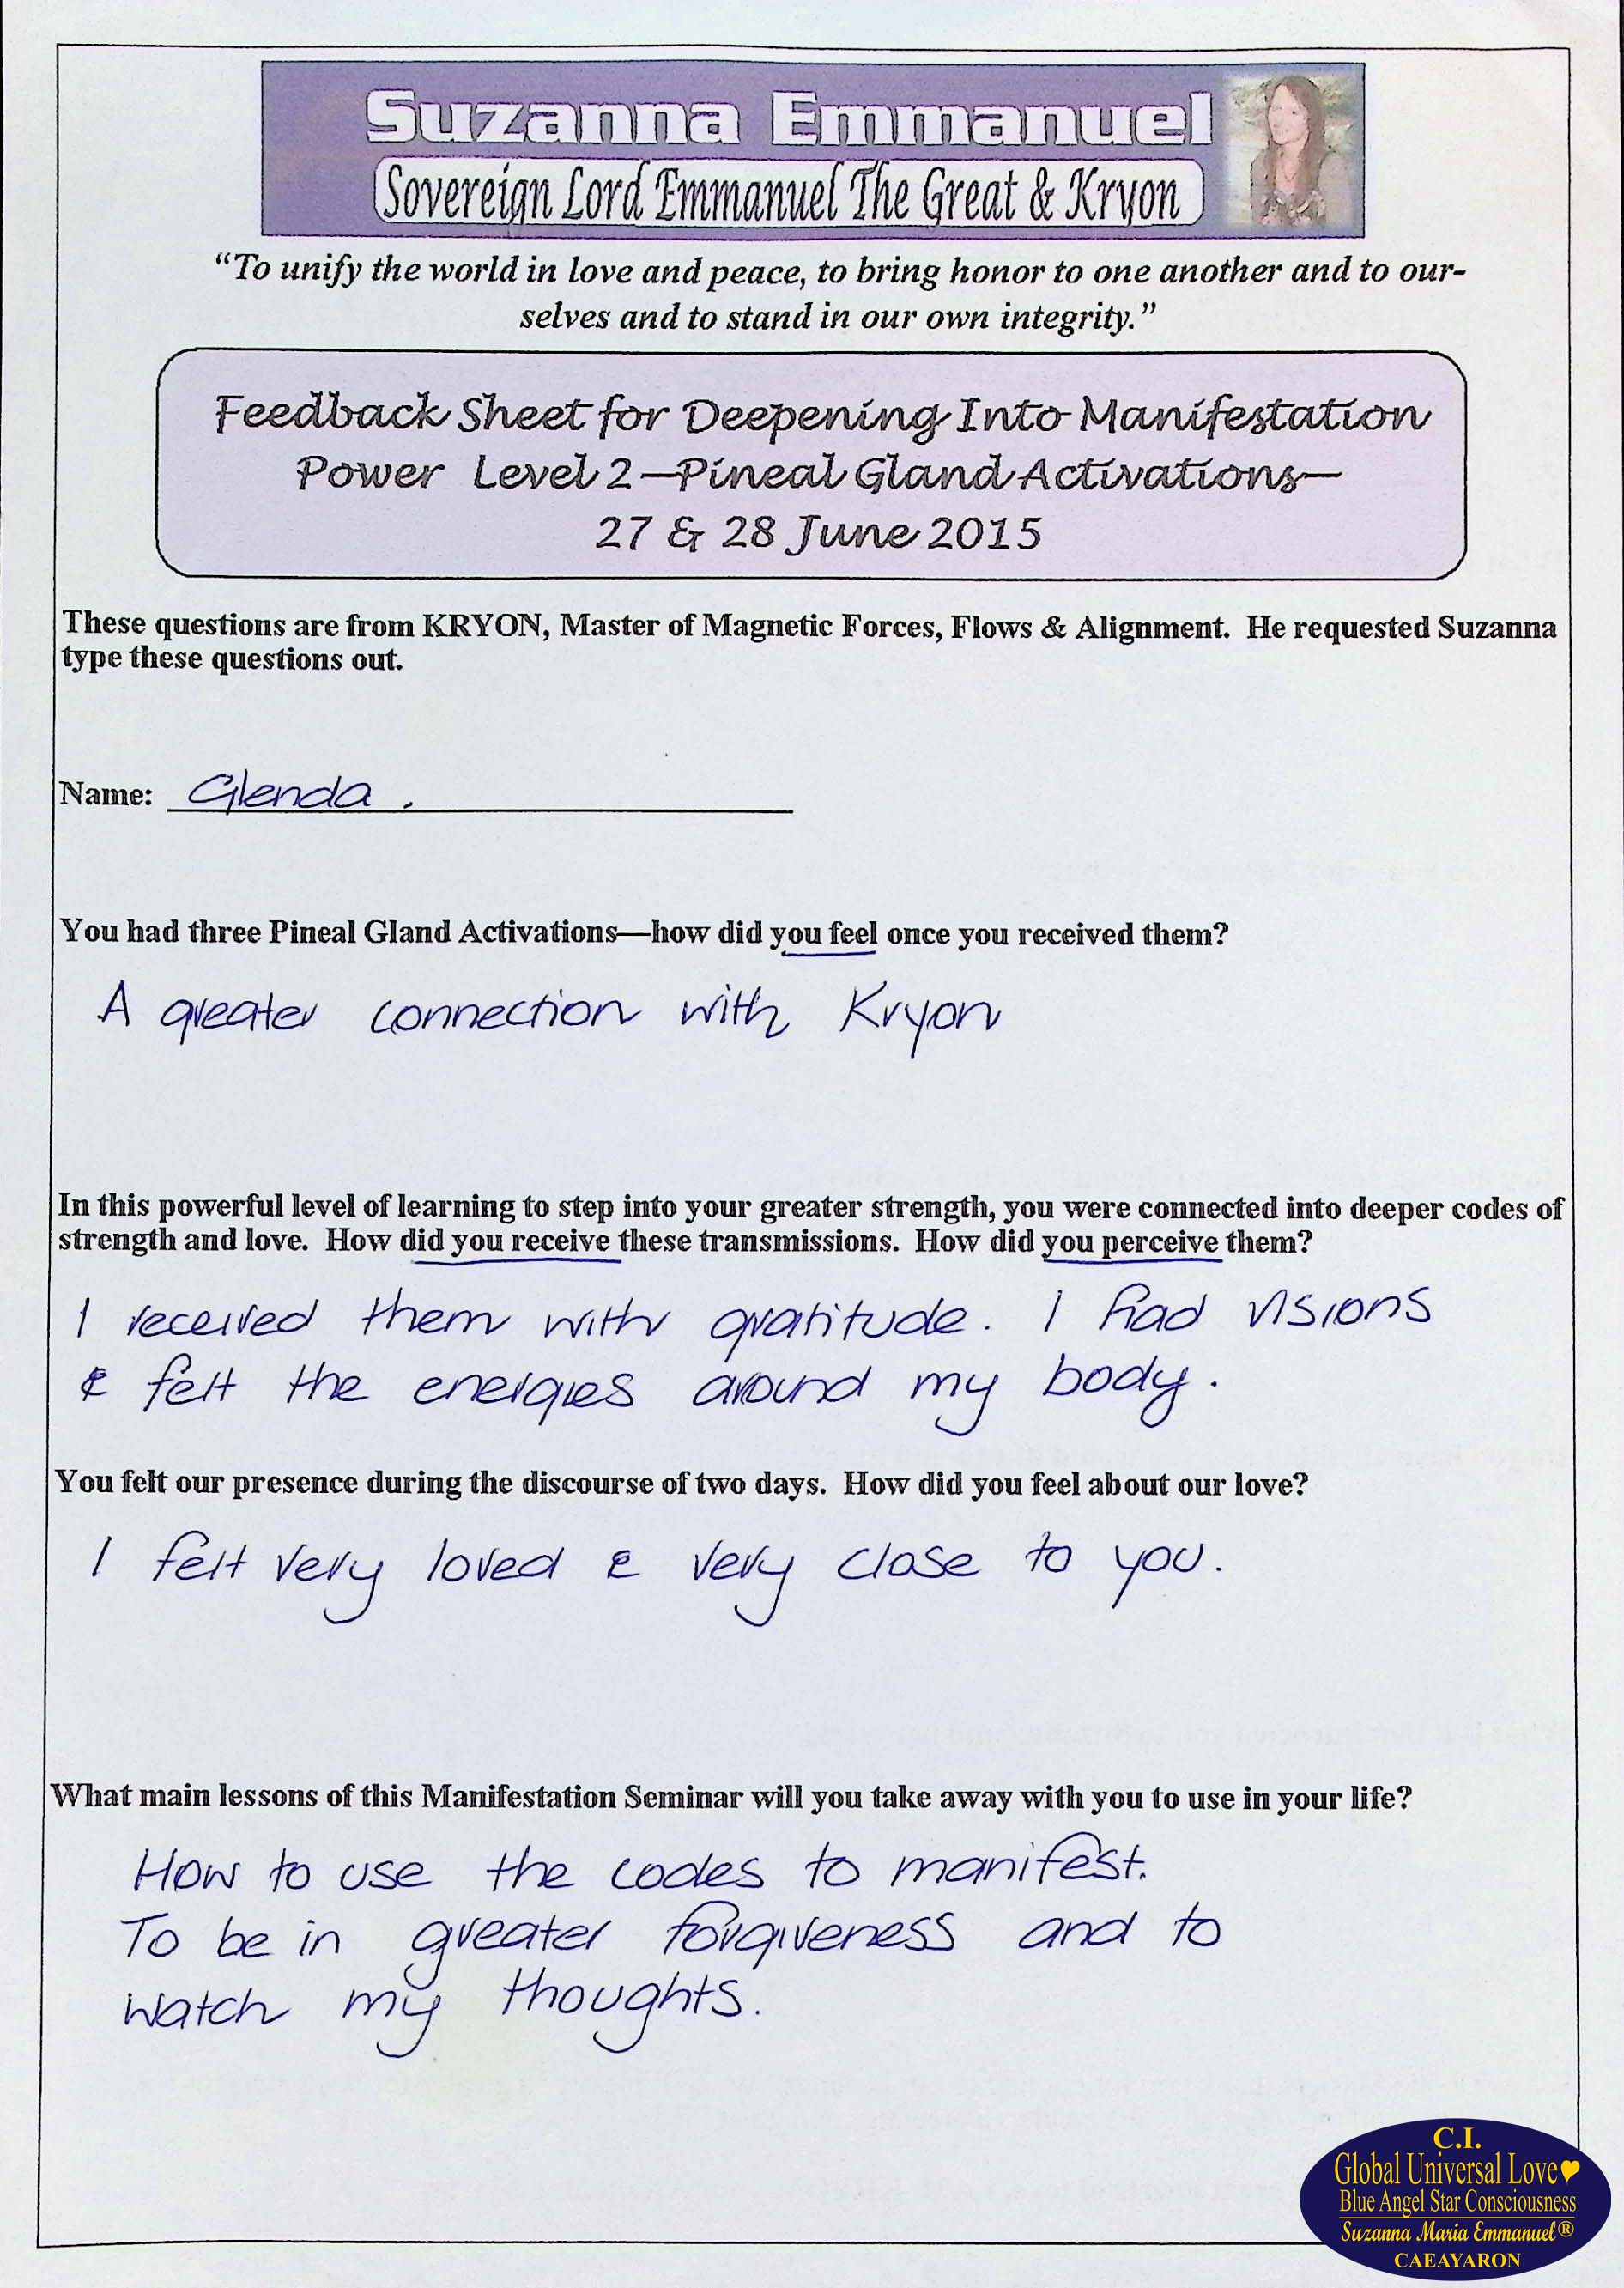 Suzanna Emmanuel
Sovereign Lord Emmanuel The Great & Kryon
“To unify the world in love and peace, to bring honor to one another and to our-
selves and to stand in our own integrity.”
Feedback Sheet for Deepening Into Manifestation
Power Level 2—Pineal Gland Activations—
27 & 28 June 2015
These questions are from KRYON, Master of Magnetic Forces, Flows & Alignment. He requested Suzanna
type these questions out.
Name: Glenda.
You had three Pineal Gland Activations—how did you feel once you received them?
A greater connection with Kryon
In this powerful level of learning to step into your greater strength, you were connected into deeper codes of
strength and love. How did you receive these transmissions. How did you perceive them?
I received them with gratitude. I had visions
& felt the energies around my body.
You felt our presence during the discourse of two days. How did you feel about our love?
I felt very loved & very close to you.
What main lessons of this Manifestation Seminar will you take away with you to use in your life?
How to use the codes to manifest.
To be in greater forgiveness and to
watch my thoughts.
C.I.
Global Universal Love
Blue Angel Star Consciousness
Suzanna Maria Emmanuel®
CAEAYARON